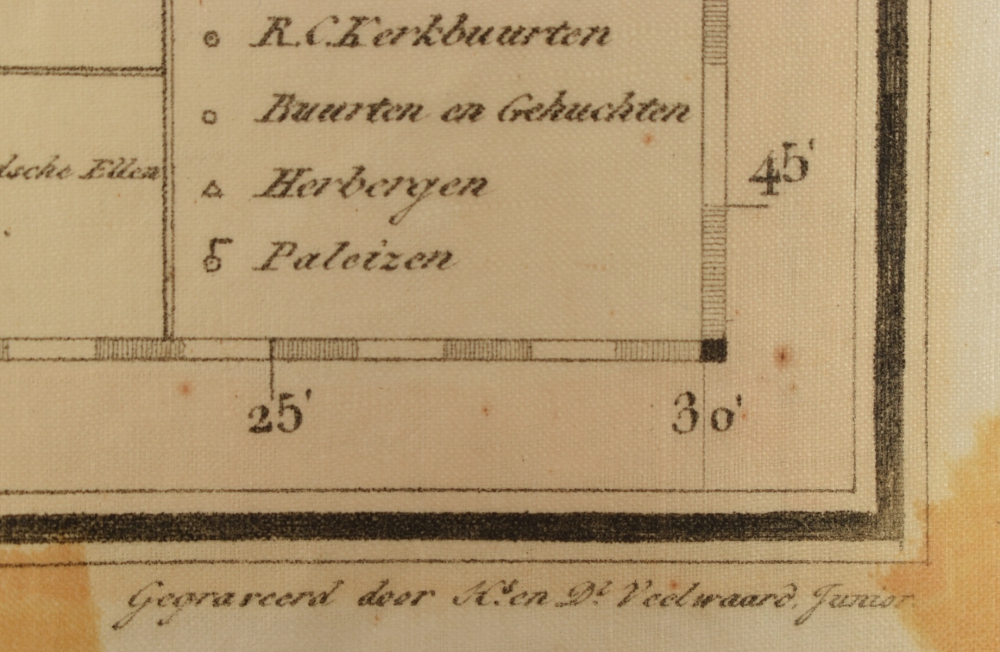 R.C.Kerkbuurten
Buurten en Gehuchten
dsche Ellen
Herbergen
Paleizen
45'
25'
30'
Gegraveerd door Ks. en Dl. Veelwaard, Junior.